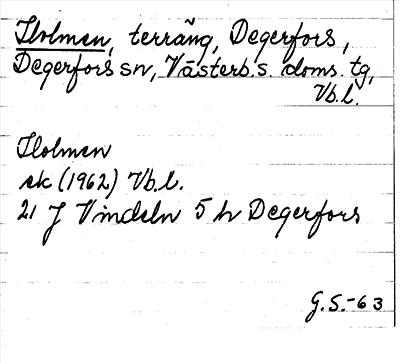 Holmen, terräng, Degerfors,
Degerfors sn, Västerb. s. doms. tg,
Vb.l.
Holmen
ek (1962) Vb.l.
21 J Vindeln 5 h Degerfors
G.S.-63